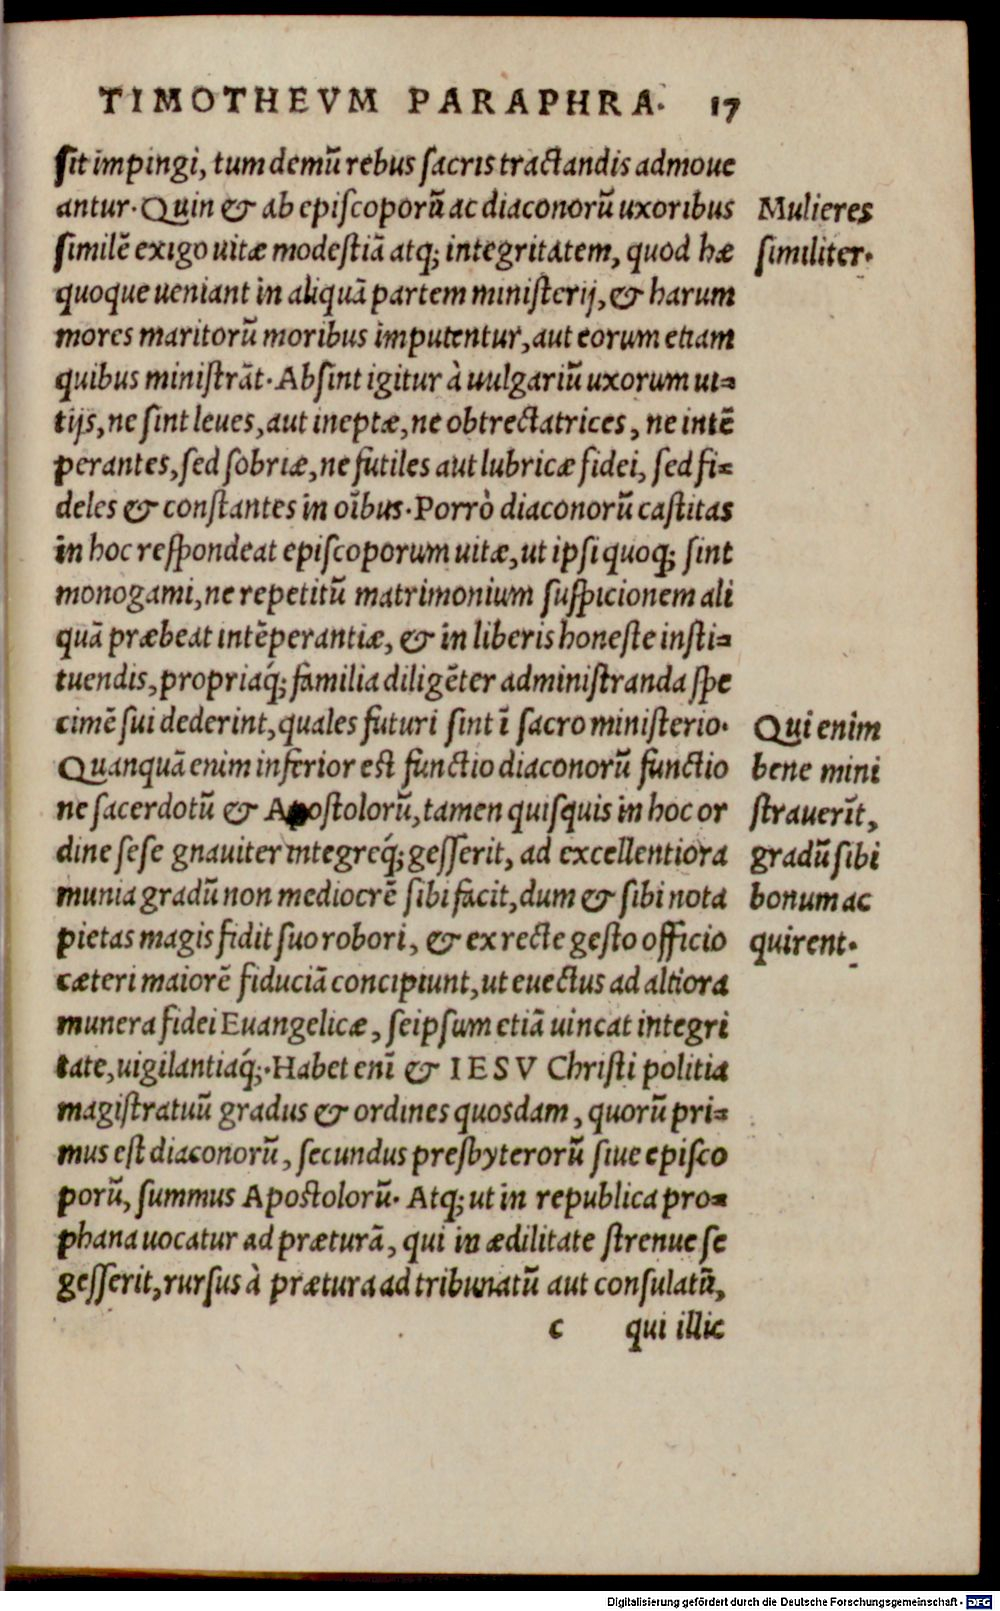 TIMOTHEVM PARAPHRA. 17
sit impingi, tum demũ rebus sacris tractandis admoue
antur. Quin & ab episcoporũ ac diaconorũ uxoribus
similẽ exigo uitæ modestiã atq; integritatem, quod hæ
quoque ueniant in aliquã partem ministerij, & harum
mores maritorũ moribus imputentur, aut eorum etiam
quibus ministrãt. Absint igitur à uulgariũ uxorum ui-
tijs, ne sint leues, aut ineptæ, ne obtrectatrices, ne intẽ
perantes, sed sobriæ, ne futiles aut lubricæ fidei, sed fi-
deles & constantes in oĩbus. Porrò diaconorũ castitas
in hoc respondeat episcoporum uitæ, ut ipsi quoq; sint
monogami, ne repetitũ matrimonium suspicionem ali
quã præbeat intẽperantiæ, & in liberis honeste insti-
tuendis, propriaq́; familia diligẽter administranda spe
cimẽ sui dederint, quales futuri sint ĩ sacro ministerio.
Quanquã enim inferior est functio diaconorũ functio
ne sacerdotũ & Apostolorũ, tamen quisquis in hoc or
dine sese gnauiter integreq́; gesserit, ad excellentiora
munia gradũ non mediocrẽ sibi facit, dum & sibi nota
pietas magis fidit suo robori, & ex recte gesto officio
cæteri maiorẽ fiduciã concipiunt, ut euectus ad altiora
munera fidei Euangelicæ, seipsum etiã uincat integri
tate, uigilantiaq́;. Habet enĩ & IESV Christi politia
magistratuũ gradus & ordines quosdam, quorũ pri-
mus est diaconorũ, secundus presbyterorũ siue episco
porũ, summus Apostolorũ. Atq; ut in republica pro-
phana uocatur ad præturã, qui in ædilitate strenue se
gesserit, rursus à prætura ad tribunatũ aut consulatũ,
c qui illic
Mulieres
similiter.
Qui enim
bene mini
strauerĩt,
gradũ sibi
bonum ac
quirent.
Digitalisierung gefördert durch die Deutsche Forschungsgemeinschaft - DFG